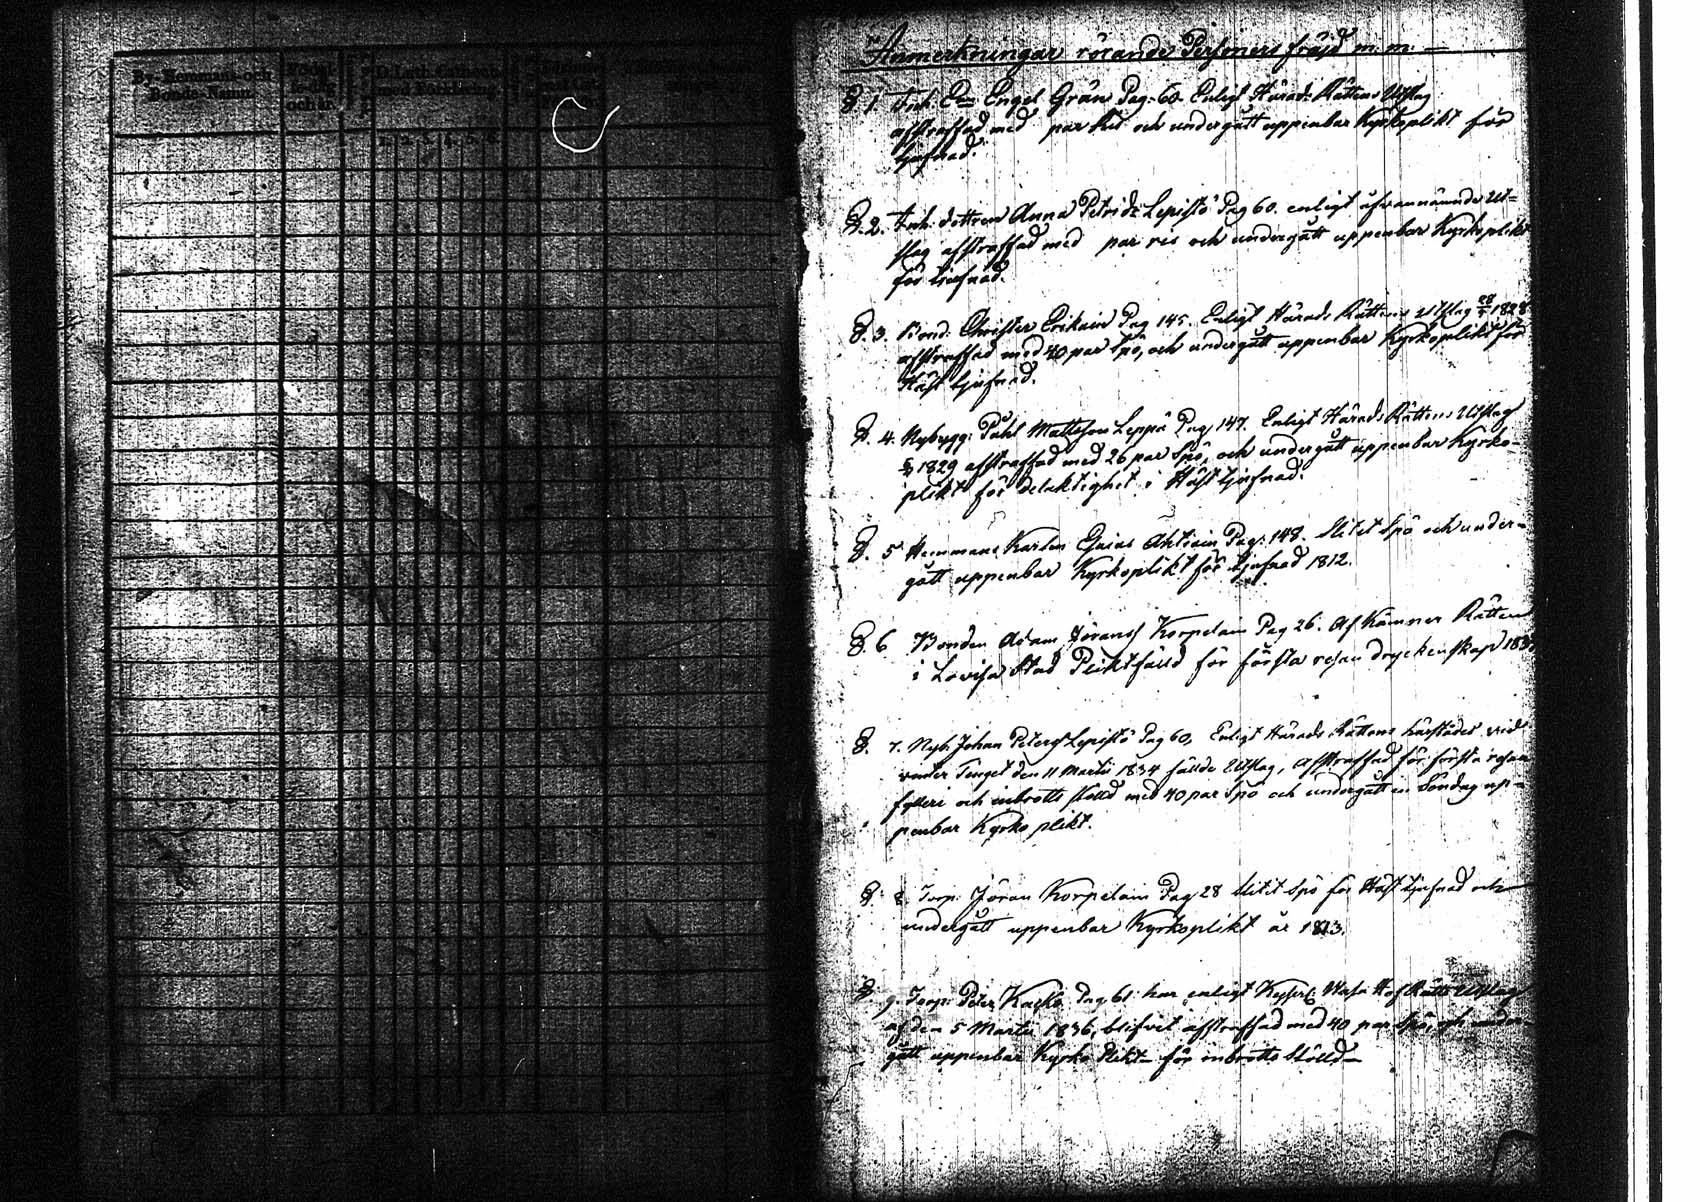 By-Hemmans-och
Bonde-Namn.
Födel-
se-dag
och år.
1. 2. 3. 4. 5. 6.
Anmerkningar rörande Personers fräjd m. m.
§ 1. Inh. Engel Grön Pag. 60. Enligt Härads Rättens Utslag
afstraffad med par Ris och undergått uppenbar Kyrkoplikt för
tjufnad.
§. 2. Inh. dottren Anna Petridr Lepistö Pag 60. enligt ofvannämnde Ut-
slag afstraffad med par ris och undergått uppenbar Kyrkoplikt
för tjufnad.
§. 3. Bond. Christer Erikain Pag 145. Enligt Härads Rättens Utslag 1828
afstraffad med 40 par Spö, och undergått uppenbar Kyrkoplikt för
Häst tjufnad.
§. 4. Nybygg: Påhl Mattsson Leppä Pag. 147. Enligt Härads Rättens Utslag
1829 afstraffad med 26 par Spö, och undergått uppenbar Kyrko-
plikt för delaktighet i Häst tjufnad.
§. 5 Hemmans Karlen Esaias Ahtiain Pag: 148. Slitit Spö och under-
gått uppenbar Kyrkoplikt för tjufnad 1812.
§. 6 Bonden Adam Göranss Korpelain Pag 26. Af Kämner Rätten
i Lovisa Stad Pliktfälld för första resan dryckenskap
§. 7. Nyb. Johan Peterss Lepistö Pag 60, Enligt Härads Rättens härstädes vid
vinter Tinget den 11 Martii 1834 fällde Utslag, afstraffad för första resan
fylleri och inbrotts stöld med 40 par Spö och undergått en Söndag up-
penbar Kyrko plikt.
§. 8. Torp. Jöran Korpelain Pag 28 slitit Spö för Häst tjufnad och
undergått uppenbar Kyrkoplikt år 1813.
§ 9. Torp: Peter Pag 61: har enligt Kejserl. Wasa Hof Rätts Utslag
af den 5 Martii 1836, blifvit afstraffad med 40 par Spö, och under-
gått uppenbar Kyrko Plikt för inbrotts Stöld